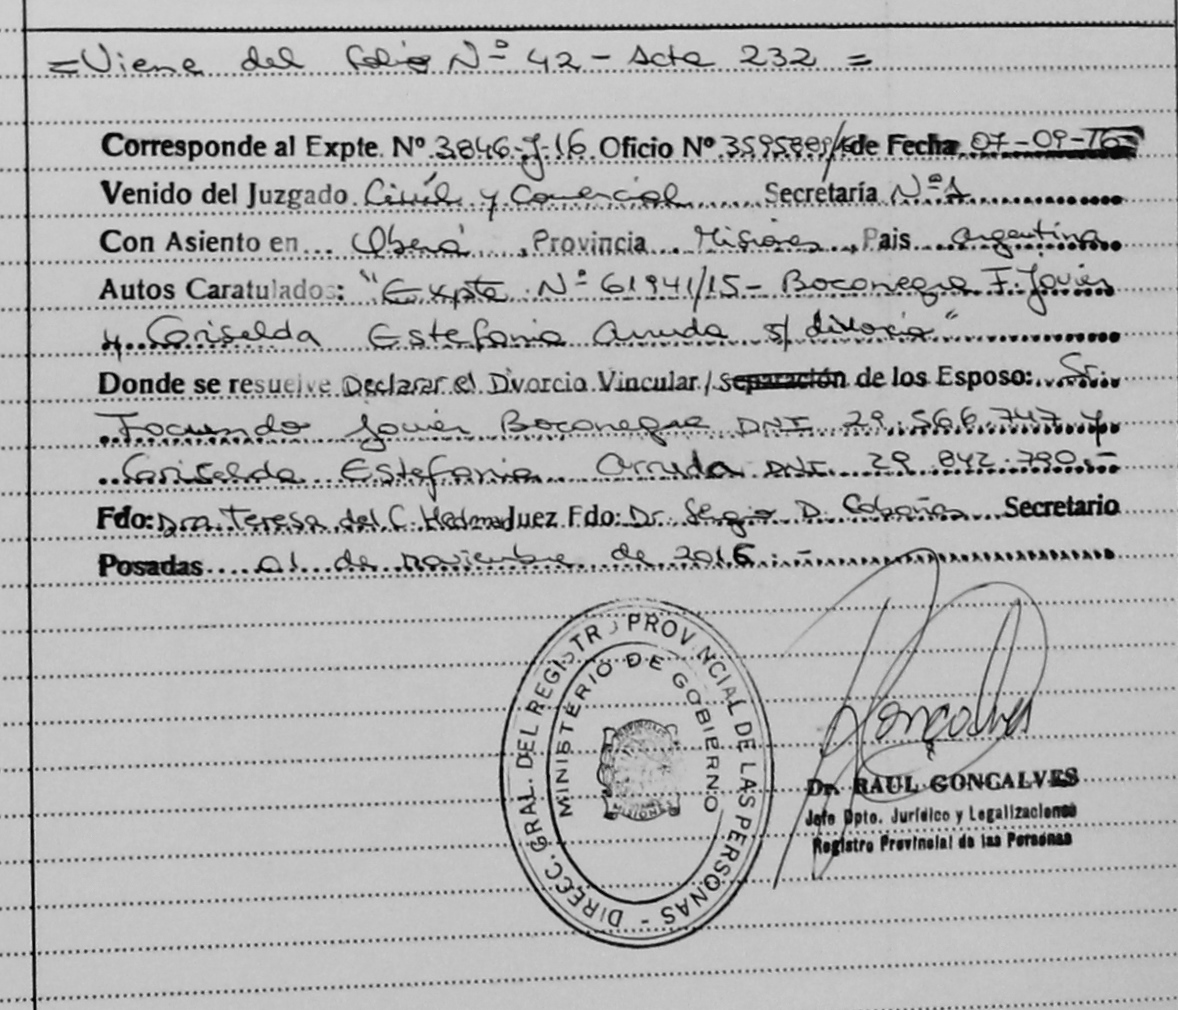 = Viene del folio Nº 42 - Acta 232 =
Corresponde al Expte. Nº 3846-J-16 Oficio Nº 3595889/16 de Fecha 07-09-16
Venido del Juzgado Civil y Comercial Secretaría Nº 1
Con Asiento en Oberá, Provincia Misiones, Pais Argentina
Autos Caratulados: "Expte Nº 61941/15 - Boconegra F. Javier
y Griselda Estefania Arruda s/ divorcio"
Donde se resuelve Declarar el Divorcio Vincular / separación de los Esposo: Sr.
Facundo Javier Boconegra DNI 29.566.747 y
Griselda Estefania Arruda DNI 29.842.790.-
Fdo: Dra. Teresa del C. Fdo: Dr. Sergio D. Cabañas Secretario
Posadas 01 de noviembre de 2016.-
DIRECC. GRAL. DEL REGISTRO PROVINCIAL DE LAS PERSONAS -
MINISTERIO DE GOBIERNO
MISIONES
Goncalves
Dr. RAUL GONCALVES
Jefe Dpto. Jurídico y Legalizaciones
Registro Provincial de las Personas